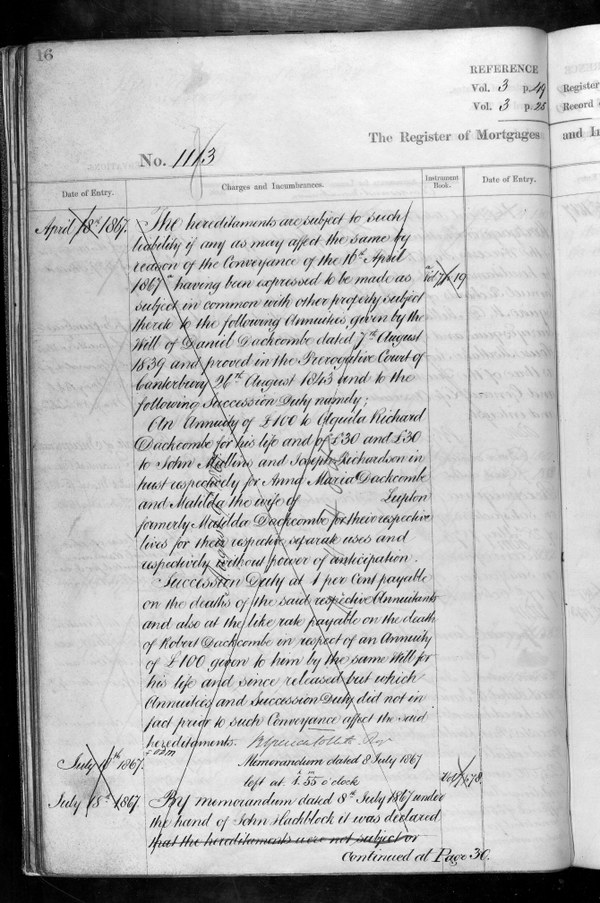 16
REFERENCE
Vol. 3 p. 49
Vol. 3 p. 25
Register
Record
The Register of Mortgages and In
No. 1113
Date of Entry.
Charges and Incumbrances.
Instrument Book.
Date of Entry.
April 18th 1867. The hereditaments are subject to such
liability if any as may affect the same by
reason of the Conveyance of the 16th April
1867 having been expressed to be made as Vol 7 p 19
subject in common with other property subject
thereto to the following Annuities given by the
Will of Daniel Dackcombe dated 7th August
1839 and proved in the Prerogative Court of
Canterbury 26th August 1843 and to the
following Succession Duty namely;
An Annuity of £100 to Richard
Dackcombe for his life and of £30 and £30
to John Mullins and Joseph Richardson in
trust respectively for Anna Maria Dackcombe
and Matilda the wife of Lupton
formerly Matilda Dackcombe for their respective
lives for their respective separate uses and
respectively without power of anticipation.
Succession Duty at 1 per Cent payable
on the deaths of the said respective Annuitants
and also at the like rate payable on the death
of Robert Dackcombe in respect of an Annuity
of £100 given to him by the same Will for
his life and since released but which
Annuities and Succession Duty did not in
fact prior to such Conveyance affect the said
hereditaments.
July 18th 1867. Memorandum dated 8 July 1867
left at 1.55 o'clock
July 18th 1867 By memorandum dated 8th July 1867 under
the hand of John Hachblock it was declared
that the hereditaments were not subject or
Continued at Page 30.